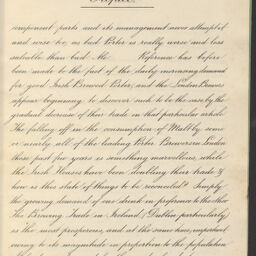 Preface.
component parts and its management never attempt it
and worse too, as bad Porter is really worse and less
saleable than bad Ale. Reference has before
been made to the fact of the daily increasing demand
for good Irish Brewed Porter, and the London Brewers
appear beginning to discover such to be the case by the
gradual decrease of their trade in that particular article
The falling off in the consumption of Malt by some
or nearly all of the leading Porter Brewers in London
these past few years is something marvellous, while
the Irish Houses have been doubling their trade &
how is this state of things to be reconciled? Simply
the growing demand of one drink in preference to the other
The Brewing Trade in Ireland (Dublin particularly)
is the most prosperous, and at the same time, important
owing to its magnitude in proportion to the population